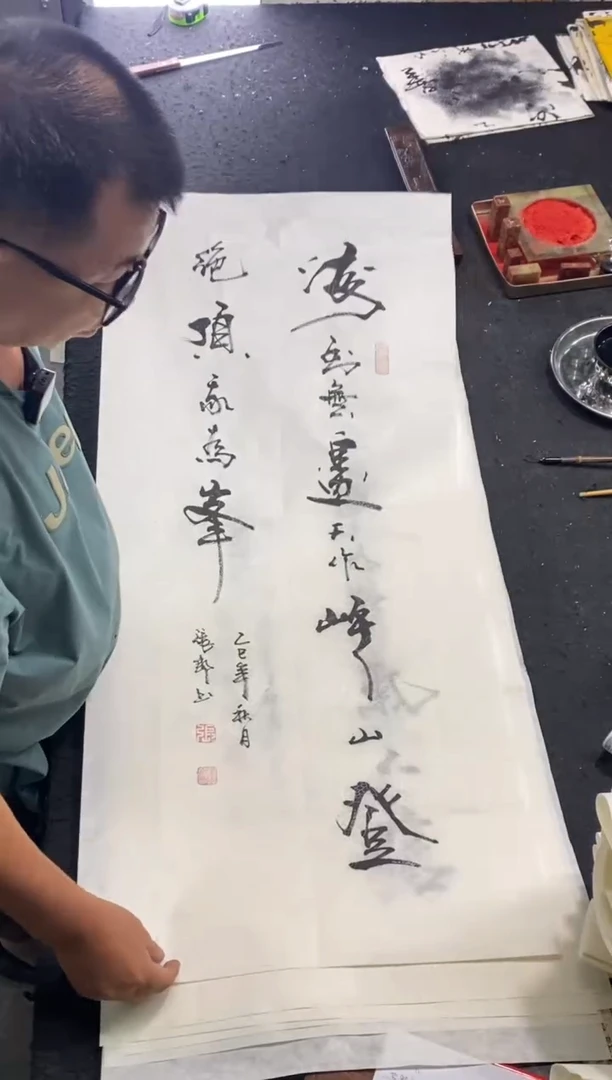 海到無邊天作岸山登
絕頂我為峯
乙巳年秋月
張
張
Je